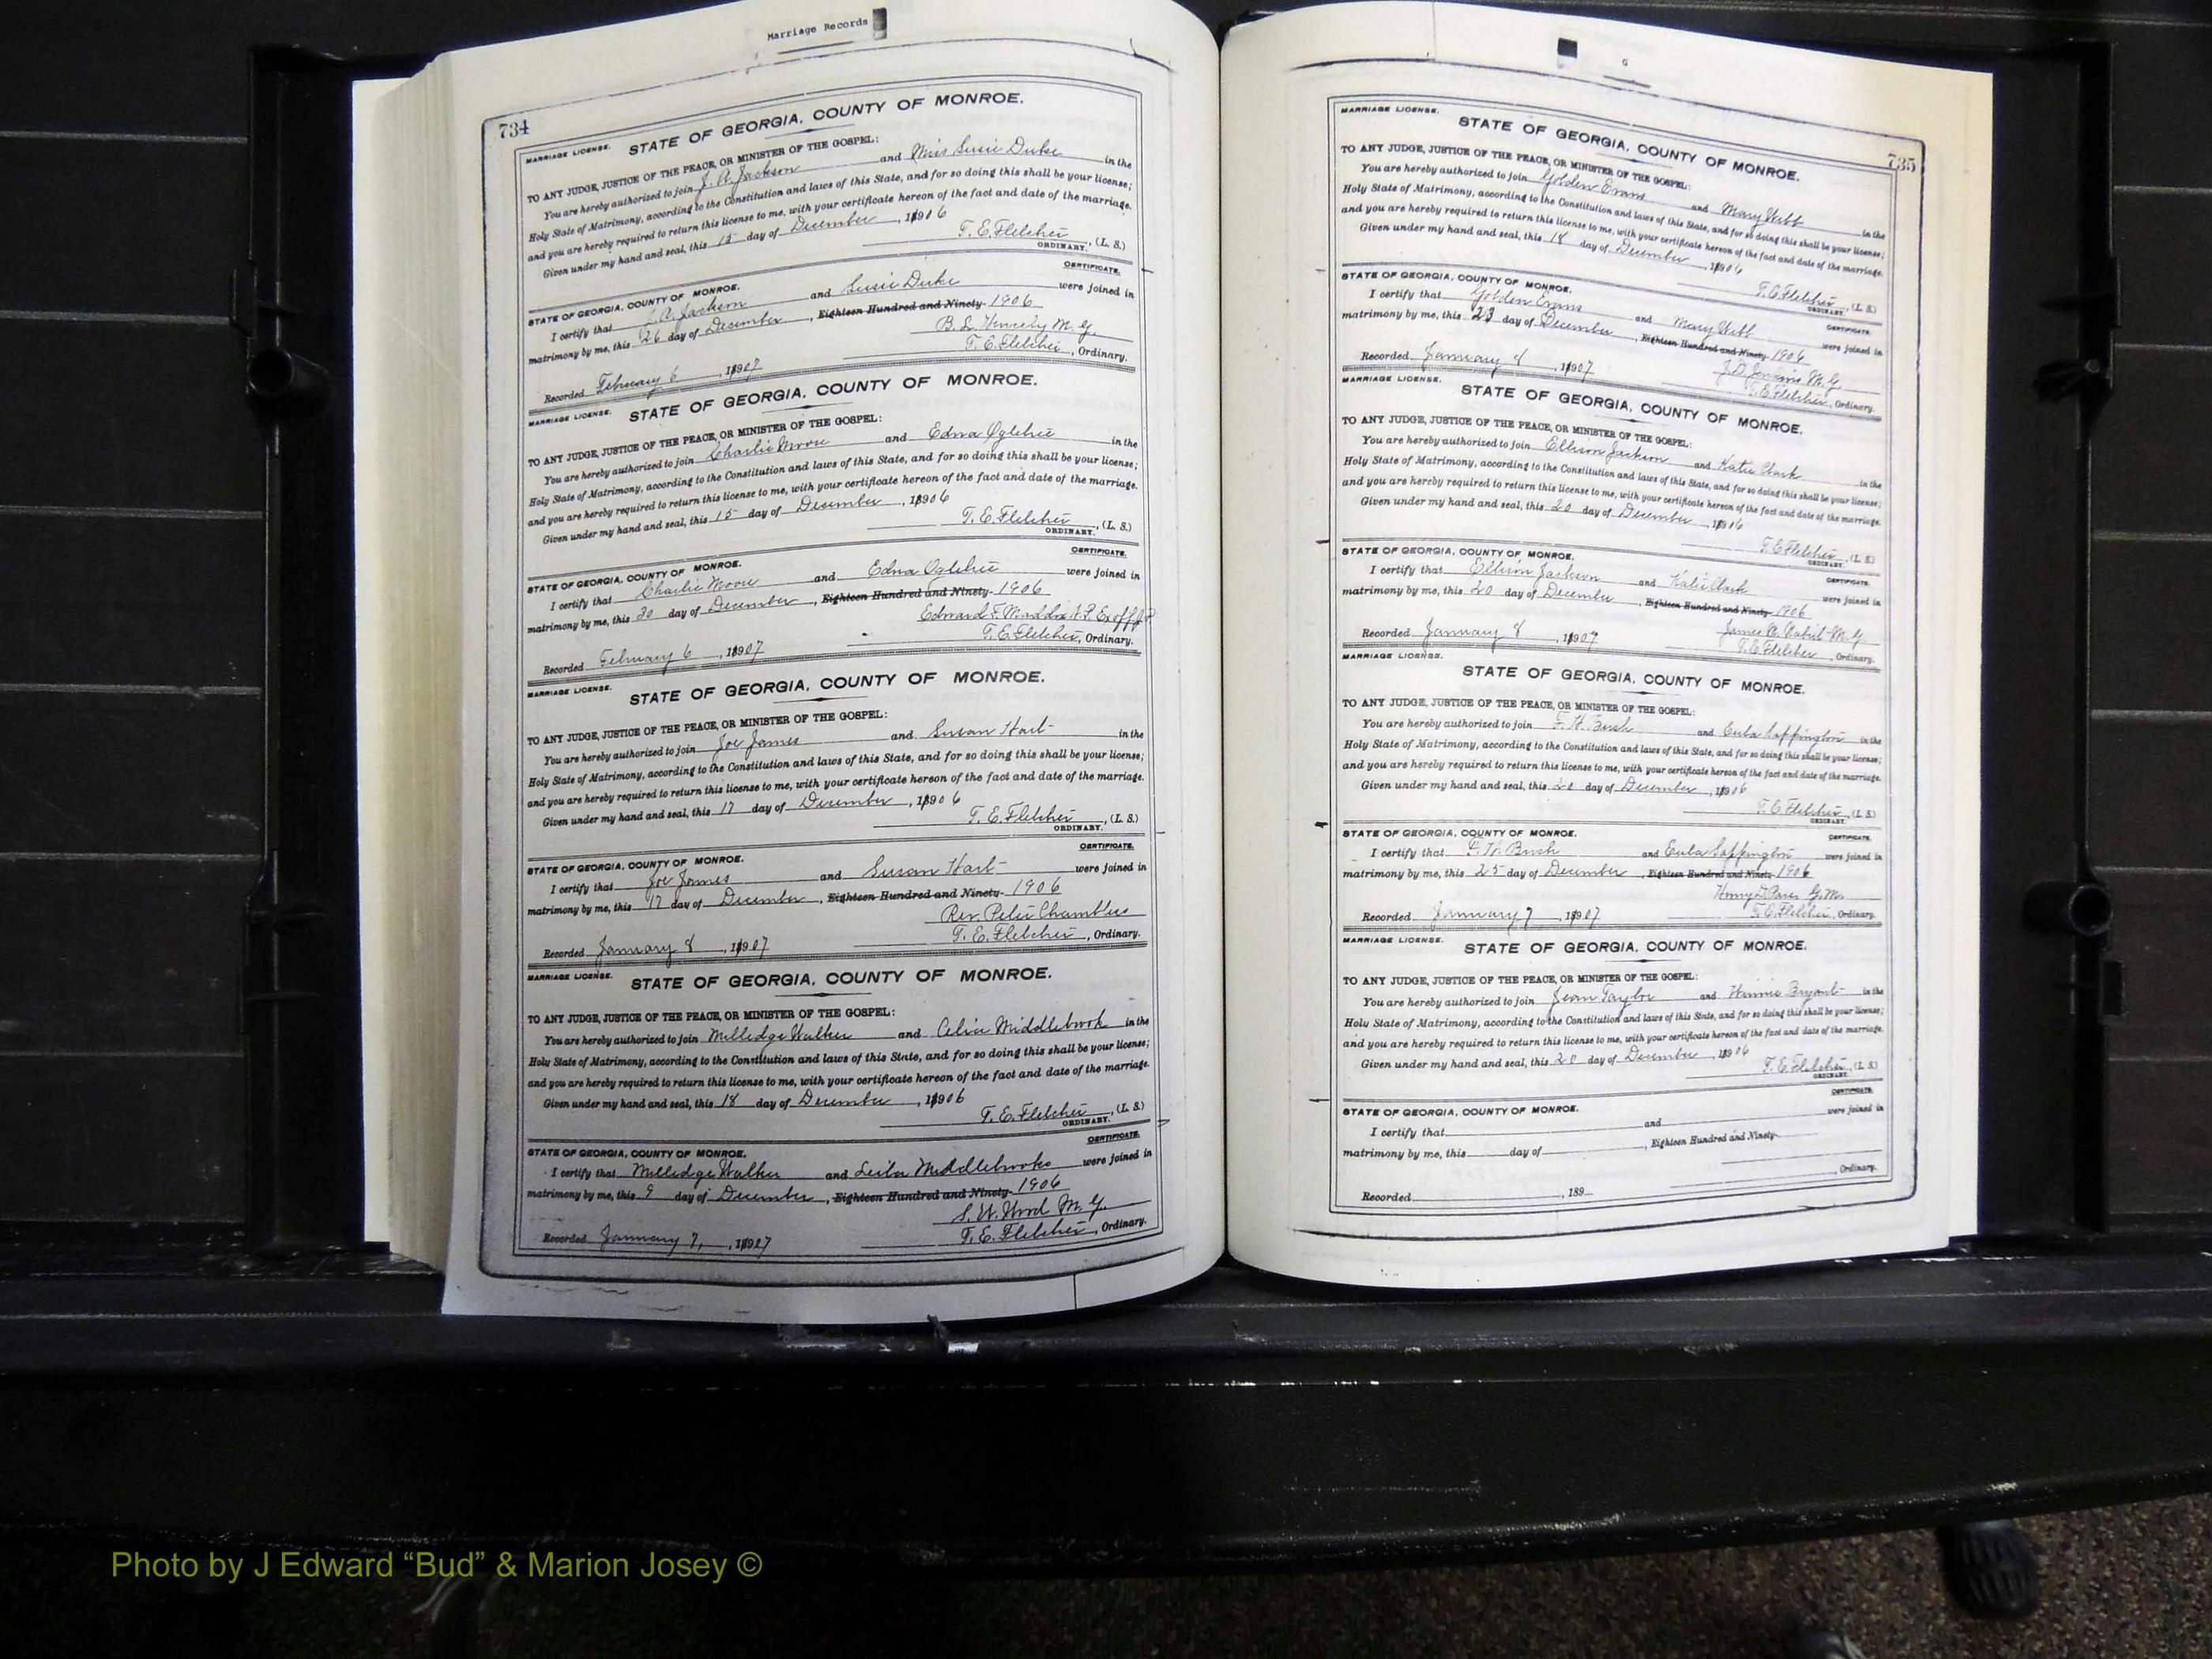 Marriage Records
734
MARRIAGE LICENSE.
STATE OF GEORGIA, COUNTY OF MONROE.
TO ANY JUDGE, JUSTICE OF THE PEACE, OR MINISTER OF THE GOSPEL:
You are hereby authorized to join J. A. Jackson and Miss Susie Duke in the
Holy State of Matrimony, according to the Constitution and laws of this State, and for so doing this shall be your license;
and you are hereby required to return this license to me, with your certificate hereon of the fact and date of the marriage.
Given under my hand and seal, this 15 day of December, 1906
T. E. Fletcher, (L. S.)
ORDINARY.
CERTIFICATE.
STATE OF GEORGIA, COUNTY OF MONROE.
I certify that J. A. Jackson and Susie Duke were joined in
matrimony by me, this 26 day of December, Eighteen Hundred and Ninety- 1906
B. L. M. G.
Recorded February 6, 1907 T. E. Fletcher, Ordinary.
MARRIAGE LICENSE.
STATE OF GEORGIA, COUNTY OF MONROE.
TO ANY JUDGE, JUSTICE OF THE PEACE, OR MINISTER OF THE GOSPEL:
You are hereby authorized to join Charlie Moore and Edna Ogletree in the
Holy State of Matrimony, according to the Constitution and laws of this State, and for so doing this shall be your license;
and you are hereby required to return this license to me, with your certificate hereon of the fact and date of the marriage.
Given under my hand and seal, this 15 day of December, 1906
T. E. Fletcher, (L. S.)
ORDINARY.
CERTIFICATE.
STATE OF GEORGIA, COUNTY OF MONROE.
I certify that Charlie Moore and Edna Ogletree were joined in
matrimony by me, this 30 day of December, Eighteen Hundred and Ninety- 1906
Edward F. Maddox N.P. Ex off J.P.
Recorded February 6, 1907 T. E. Fletcher, Ordinary.
MARRIAGE LICENSE.
STATE OF GEORGIA, COUNTY OF MONROE.
TO ANY JUDGE, JUSTICE OF THE PEACE, OR MINISTER OF THE GOSPEL:
You are hereby authorized to join Joe James and Susan Hart in the
Holy State of Matrimony, according to the Constitution and laws of this State, and for so doing this shall be your license;
and you are hereby required to return this license to me, with your certificate hereon of the fact and date of the marriage.
Given under my hand and seal, this 17 day of December, 1906
T. E. Fletcher, (L. S.)
ORDINARY.
CERTIFICATE.
STATE OF GEORGIA, COUNTY OF MONROE.
I certify that Joe James and Susan Hart were joined in
matrimony by me, this 17 day of December, Eighteen Hundred and Ninety- 1906
Rev. Peter Chambliss
Recorded January 8, 1907 T. E. Fletcher, Ordinary.
MARRIAGE LICENSE.
STATE OF GEORGIA, COUNTY OF MONROE.
TO ANY JUDGE, JUSTICE OF THE PEACE, OR MINISTER OF THE GOSPEL:
You are hereby authorized to join Milledge Walker and Celia Middlebrook in the
Holy State of Matrimony, according to the Constitution and laws of this State, and for so doing this shall be your license;
and you are hereby required to return this license to me, with your certificate hereon of the fact and date of the marriage.
Given under my hand and seal, this 18 day of December, 1906
T. E. Fletcher, (L. S.)
ORDINARY.
CERTIFICATE.
STATE OF GEORGIA, COUNTY OF MONROE.
I certify that Milledge Walker and Leila Middlebrooks were joined in
matrimony by me, this 9 day of December, Eighteen Hundred and Ninety- 1906
S. W. Wood M. G.
Recorded January 7, 1907 T. E. Fletcher, Ordinary.
735
MARRIAGE LICENSE.
STATE OF GEORGIA, COUNTY OF MONROE.
TO ANY JUDGE, JUSTICE OF THE PEACE, OR MINISTER OF THE GOSPEL:
You are hereby authorized to join Golden Evans and Mary Webb in the
Holy State of Matrimony, according to the Constitution and laws of this State, and for so doing this shall be your license;
and you are hereby required to return this license to me, with your certificate hereon of the fact and date of the marriage.
Given under my hand and seal, this 18 day of December, 1906
T. E. Fletcher, (L. S.)
ORDINARY.
CERTIFICATE.
STATE OF GEORGIA, COUNTY OF MONROE.
I certify that Golden Evans and Mary Webb were joined in
matrimony by me, this 23 day of December, Eighteen Hundred and Ninety- 1906
J. D. Jenkins M. G.
Recorded January 8, 1907 T. E. Fletcher, Ordinary.
MARRIAGE LICENSE.
STATE OF GEORGIA, COUNTY OF MONROE.
TO ANY JUDGE, JUSTICE OF THE PEACE, OR MINISTER OF THE GOSPEL:
You are hereby authorized to join Ellison Jackson and Katie Clark in the
Holy State of Matrimony, according to the Constitution and laws of this State, and for so doing this shall be your license;
and you are hereby required to return this license to me, with your certificate hereon of the fact and date of the marriage.
Given under my hand and seal, this 20 day of December, 1906
T. E. Fletcher, (L. S.)
ORDINARY.
CERTIFICATE.
STATE OF GEORGIA, COUNTY OF MONROE.
I certify that Ellison Jackson and Katie Clark were joined in
matrimony by me, this 20 day of December, Eighteen Hundred and Ninety- 1906
James M. G.
Recorded January 8, 1907 T. E. Fletcher, Ordinary.
MARRIAGE LICENSE.
STATE OF GEORGIA, COUNTY OF MONROE.
TO ANY JUDGE, JUSTICE OF THE PEACE, OR MINISTER OF THE GOSPEL:
You are hereby authorized to join F. H. Bush and Eula Sappington in the
Holy State of Matrimony, according to the Constitution and laws of this State, and for so doing this shall be your license;
and you are hereby required to return this license to me, with your certificate hereon of the fact and date of the marriage.
Given under my hand and seal, this 20 day of December, 1906
T. E. Fletcher, (L. S.)
ORDINARY.
CERTIFICATE.
STATE OF GEORGIA, COUNTY OF MONROE.
I certify that F. H. Bush and Eula Sappington were joined in
matrimony by me, this 25 day of December, Eighteen Hundred and Ninety- 1906
Henry D. G. M.
Recorded January 7, 1907 T. E. Fletcher, Ordinary.
MARRIAGE LICENSE.
STATE OF GEORGIA, COUNTY OF MONROE.
TO ANY JUDGE, JUSTICE OF THE PEACE, OR MINISTER OF THE GOSPEL:
You are hereby authorized to join Taylor and Bryant in the
Holy State of Matrimony, according to the Constitution and laws of this State, and for so doing this shall be your license;
and you are hereby required to return this license to me, with your certificate hereon of the fact and date of the marriage.
Given under my hand and seal, this 20 day of December, 1906
T. E. Fletcher, (L. S.)
ORDINARY.
CERTIFICATE.
STATE OF GEORGIA, COUNTY OF MONROE.
I certify that and were joined in
matrimony by me, this day of , Eighteen Hundred and Ninety-
, Ordinary.
Recorded , 189
Photo by J Edward “Bud” & Marion Josey ©